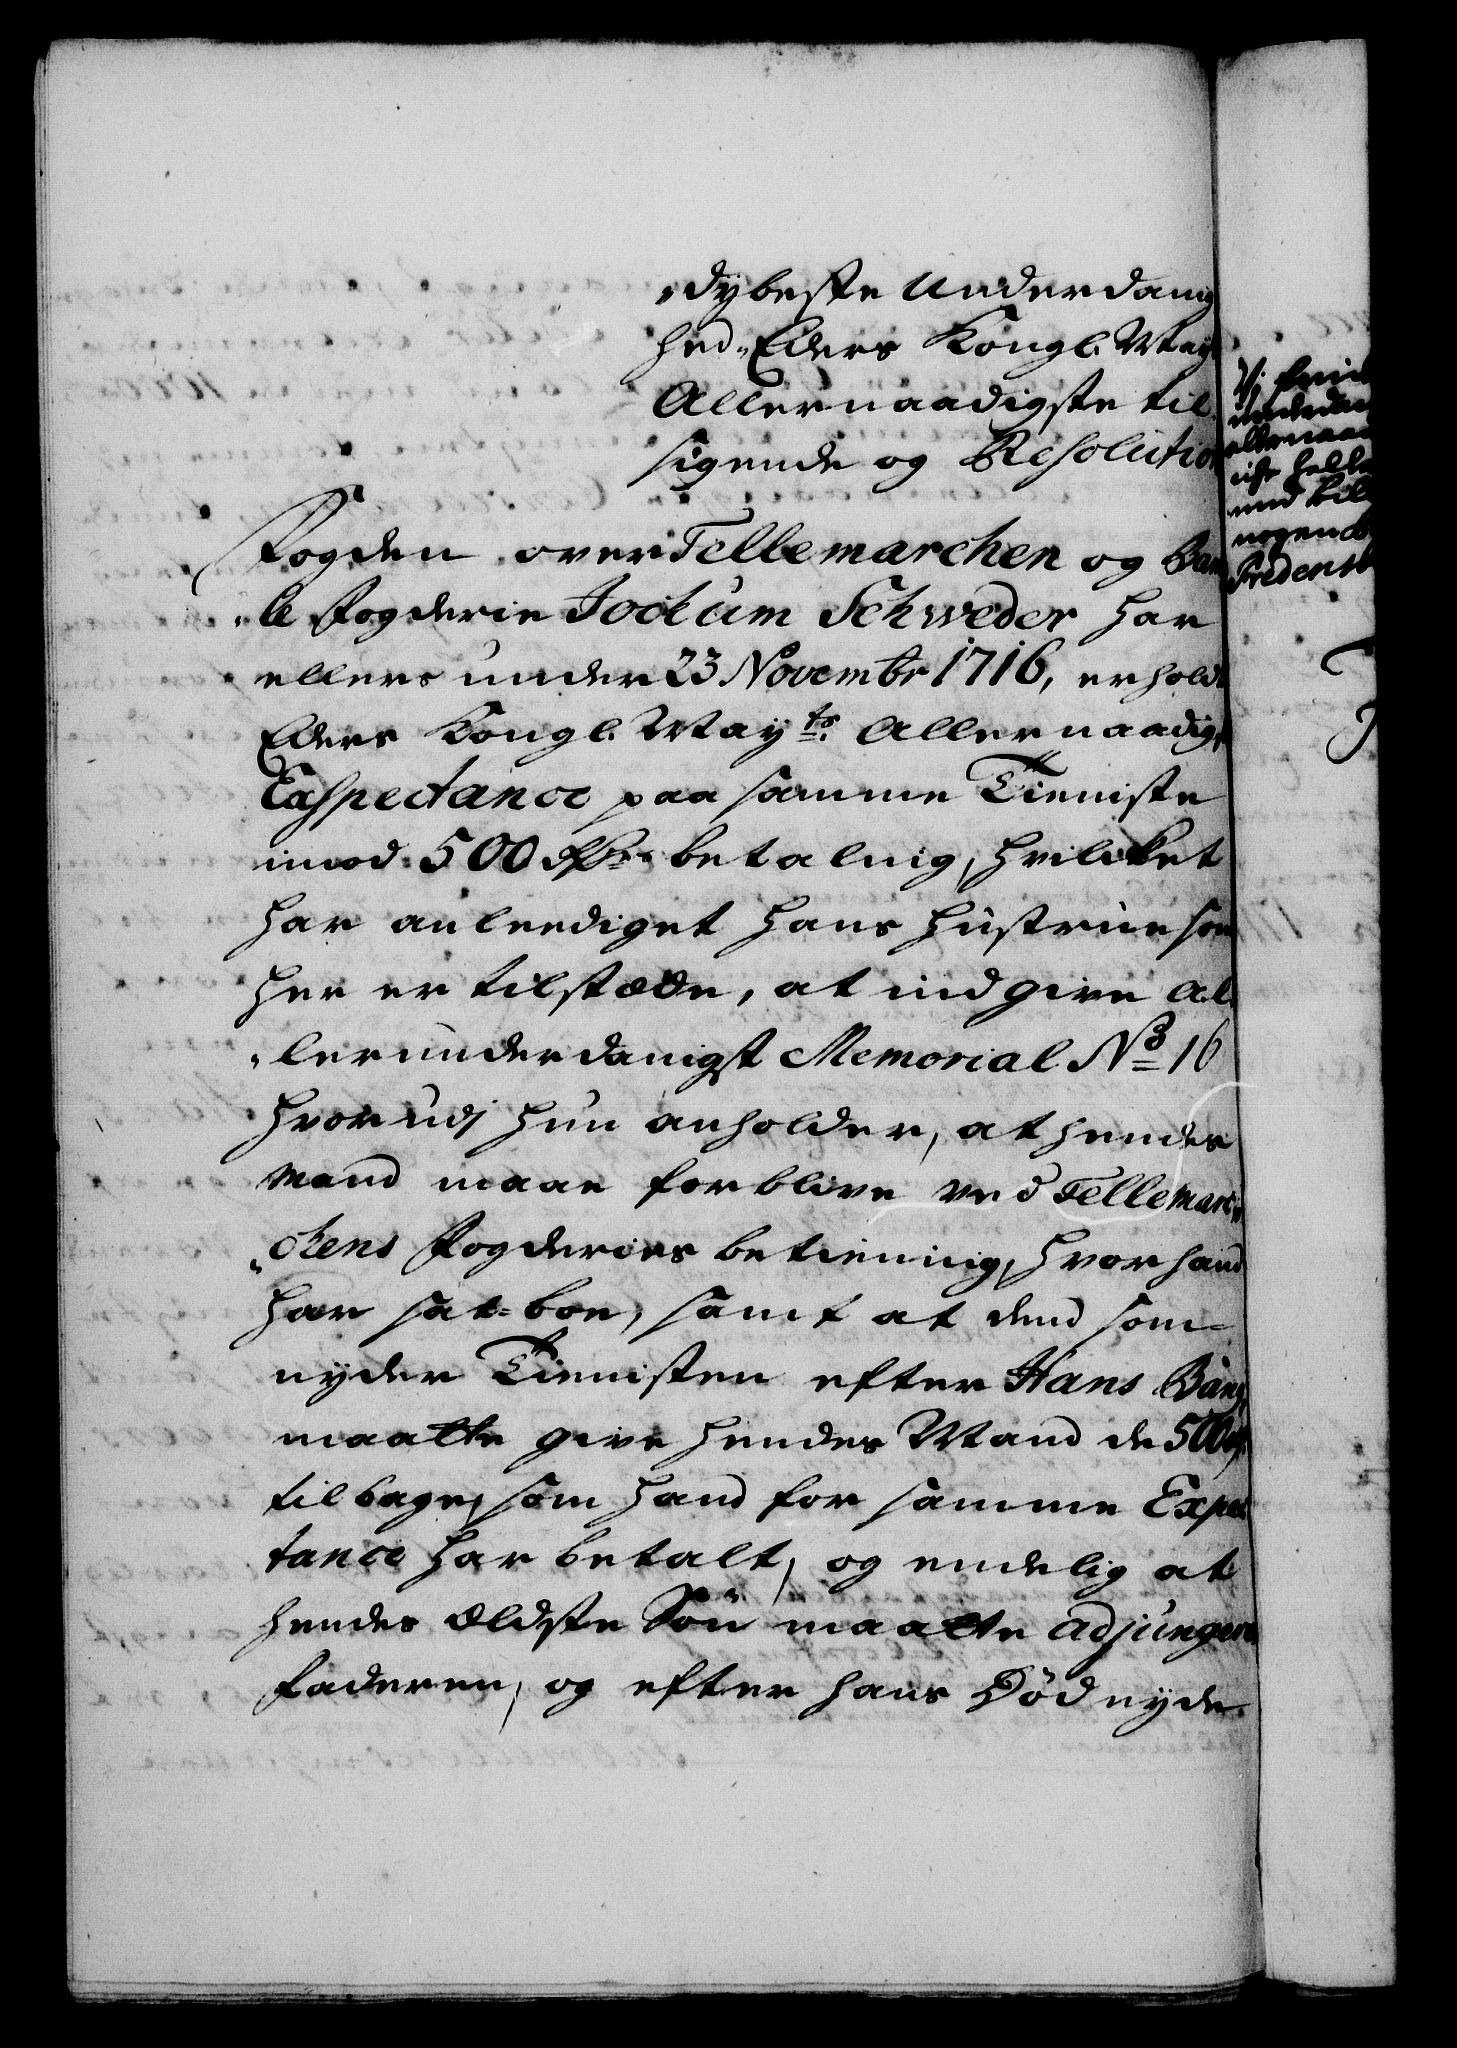 „dybeste Underdanig
hed„ Eders Kongl. May
Allernaadigste til
sigende og Resolution
Fogden over Tellemarchen og Bam
„le Fogderie Jockum Schweder har
ellers under 23 Novembr 1716, erholdt
Eders Kongl. Mayts. Allernaadigst
Exspectance paa samme Tieniste
imod 500 Rdr. betalning, hvilcket
har anleediget hans Hustrue som
her er tilstæde, at indgive al
„lerunderdanigst Memorial No 16
hvorudj hun anholder, at hendes
Mand maae forblive ved Tellemar
„ckens Fogderies betiening, hvor hand
har sat-boe, samt at dend som
nyder Tienisten efter Hans Bang,
maatte give hendes Mand de 500
tilbage, som hand for samme Expec
tance har betalt, og endelig at
hendes ældste Søn maatte adjungeres
Faderen, og efter hans Død nyde
Vi
underdan
allernaa